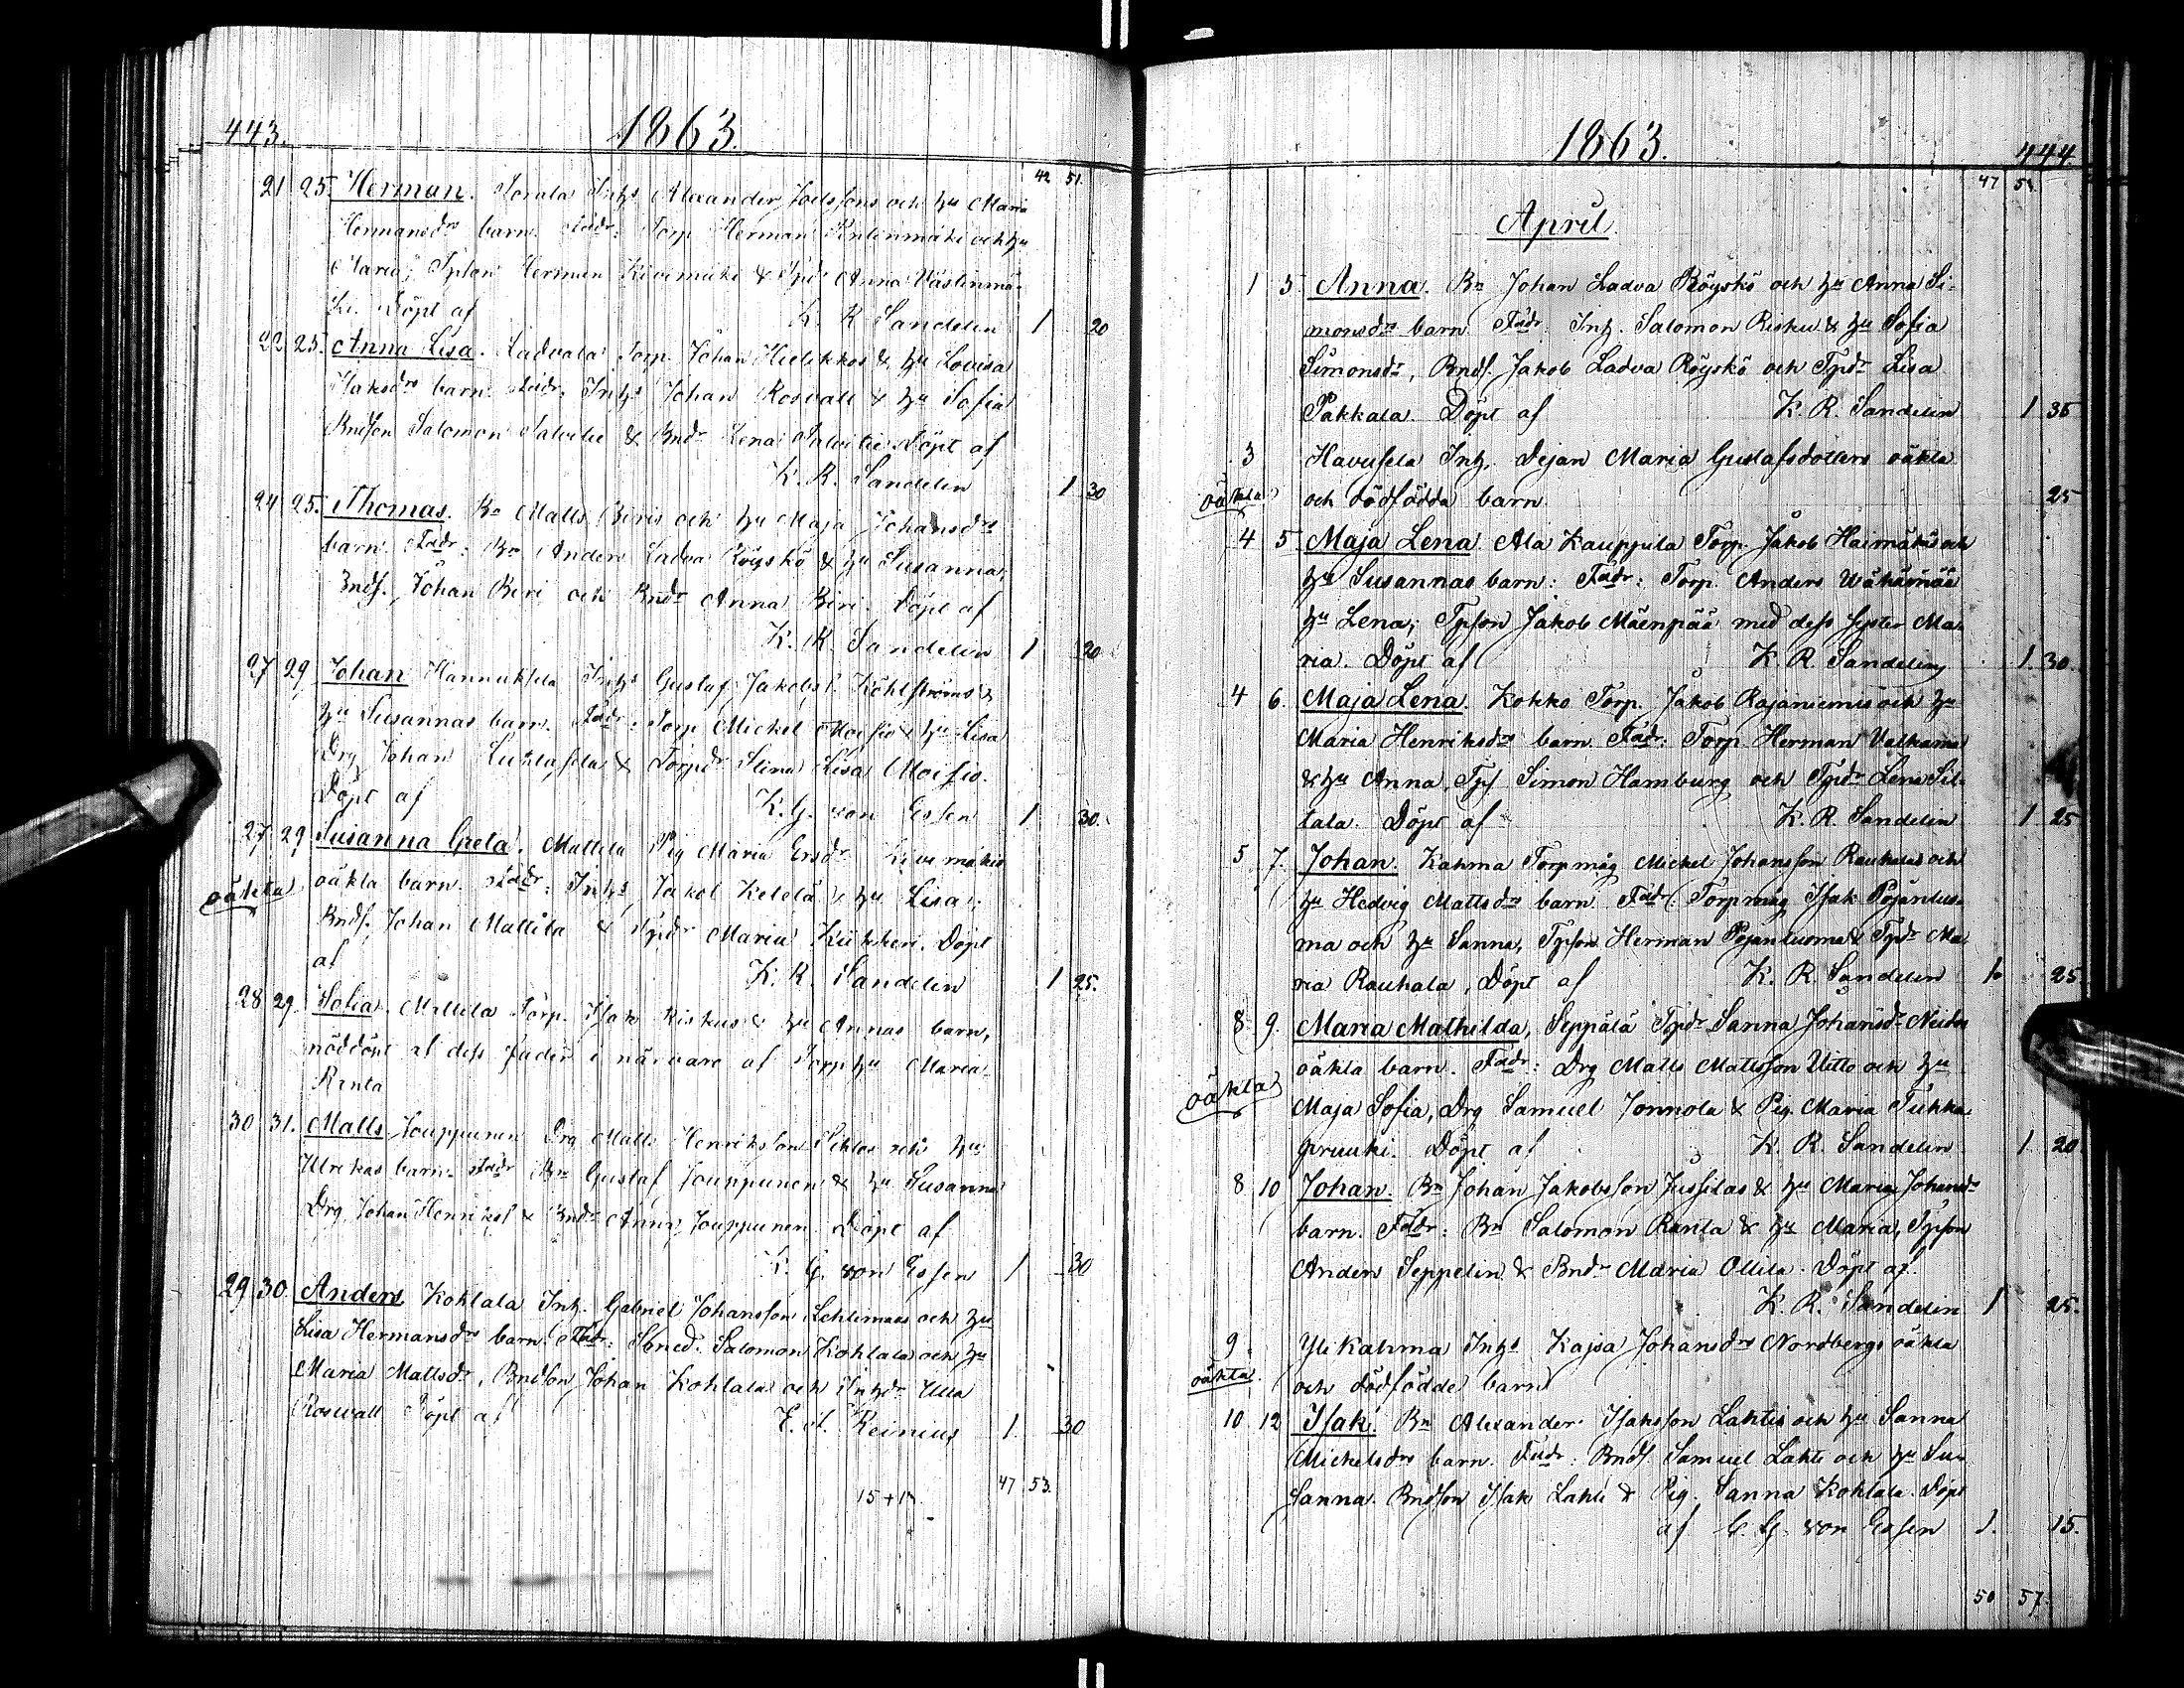 443.
1863.
42 51.
21 25. Herman. Torala Inhs Alexander Joelssons och hu Maria
Hermansdrs barn. Fadr: Torp Herman Rintinmäki och hu
Maria; Tpson Herman Kivimäki & Tpdr Anna Västinmä-
ki. Döpt af K. R Sandelin 1 20
22 25. Anna Lisa. Ladvala Torp. Johan & hu Lovisa
Isaksdrs barn. Fadr. Inhs Johan Rosvall & hu Sofia
Bndson Salomon & Bndr Lena Döpt af
K. R. Sandelin 1 30
24 25. Thomas. Bn Matts Biris och hu Maja Johansdrs
barn. Fadr: Bn Anders Ladva Röyskö & hu Susanna,
Bnds. Johan Biri och Bndr Anna Biri. Döpt af
K. R. Sandelin 1 20
27 29 Johan Hannuksela Inhs Gustaf Jakobss. Kohlströms &
hu Susannas barn. Fadr: Torp Mickel Moisio & hu Lisa
Drg Johan Luhtasela & Torpdr Stina Lisa Moisio.
Döpt af K. G. von Essen 1 30.
27 29 Susanna Greta. Mattila Pig Maria Ersdr Kivimäkis
oäkta oäkta barn. Fadr: Inhs Jakob Ketelä & hu Lisa;
Bnds. Johan Mattila & Tpdr Maria Kiikkeri. Döpt
af K. R. Sandelin 1 25.
28 29. Sofia. Mattila Torp. Isak Riskus & hu Annas barn,
nöddöpt af dess fader i närvaro af Torp hu Maria
Ranta
30 31. Matts Jouppunen Drg Matts Henriksson och hu
Ulrikas barn. Fadr Bn Gustaf Jouppunen & hu Susanna
Drg Johan Henrikss & Bndr Anna Jouppunen. Döpt af
K. G. von Essen 1 30
29 30. Anders Kohlala Inh. Gabriel Johansson Lehtimäis och hu
Lisa Hermansdrs barn. Fadr: Salomon Kohtala och hu
Maria Mattsdr, Bndson Johan Kohtala och Inhdr Ulla
Roswall Döpt af E. J. Reinius 1. 30
47 53.
15 + 1
1863.
444
47 51.
April.
1 5. Anna. Bn Johan Ladva Röyskö och hu Anna Si-
monsdrs barn. Fadr: Inh. Salomon Risku & hu Sofia
Simonsdr, Bnds. Jakob Ladva Röyskö och Tpdr Lisa
Pakkala. Döpt af K. R. Sandelin 1 35
3 Havusela Inh. Dejan Maria Gustafsdotters oäkta
oäkta och dödfödda barn. 25
4 5 Maja Lena. Ala Kauppila Torp. Jakob Haimäkis och
hu Susannas barn: Fadr: Torp. Anders Wähämää
hu Lena; Tpson Jakob Mäenpää med dess syster Ma-
ria. Döpt af K. R. Sandelin 1 30.
4 6. Maja Lena. Kokko Torp. Jakob Rajaniemis och hu
Maria Henriksdrs barn. Fadr: Torp Herman Valkama
& hu Anna, Tps Simon Hamburg och Tpdr Lena Sil-
tala. Döpt af K. R. Sandelin 1 25
5 7. Johan. Kahma Torpmåg Mickel Johansson Rauhalas och
hu Hedvig Mattsdrs barn. Fadr: Torpmåg Isak Pojanluo-
ma och hu Sanna, Tpson Herman Pojanluoma & Tpdr Ma-
ria Rauhala, Döpt af K. R. Sandelin 1 25
8 9. Maria Mathilda, Seppälä Tpdr Sanna Johansdr
oäkta oäkta barn. Fadr: Drg Matts Mattsson Uitto och hu
Maja Sofia, Drg Samuel Jonnola & Pig. Maria Tuhka
pruuki. Döpt af K. R. Sandelin 1 20
8 10 Johan. Bn Johan Jakobsson Jussilas & hu Maria Johansdr
barn. Fadr: Bn Salomon Ranta & hu Maria, Tpson
Anders Seppelin & Bndr Maria Ollila. Döpt af
K. R. Sandelin 1 25.
9. Yli Kahma Inhs Kajsa Johansdrs Nordbergs oäkta
oäkta och dödfödde barn
10 12 Isak. Bn Alexander Isaksson Lahtis och hu Sanna
Michelsdrs barn. Fadr: Bnds. Samuel Lahti och hu Su-
sanna. Bndson Isak Lahti & Pig. Sanna Kohtala. Döpt
af K. G. von Essen 1. 15.
50 57.